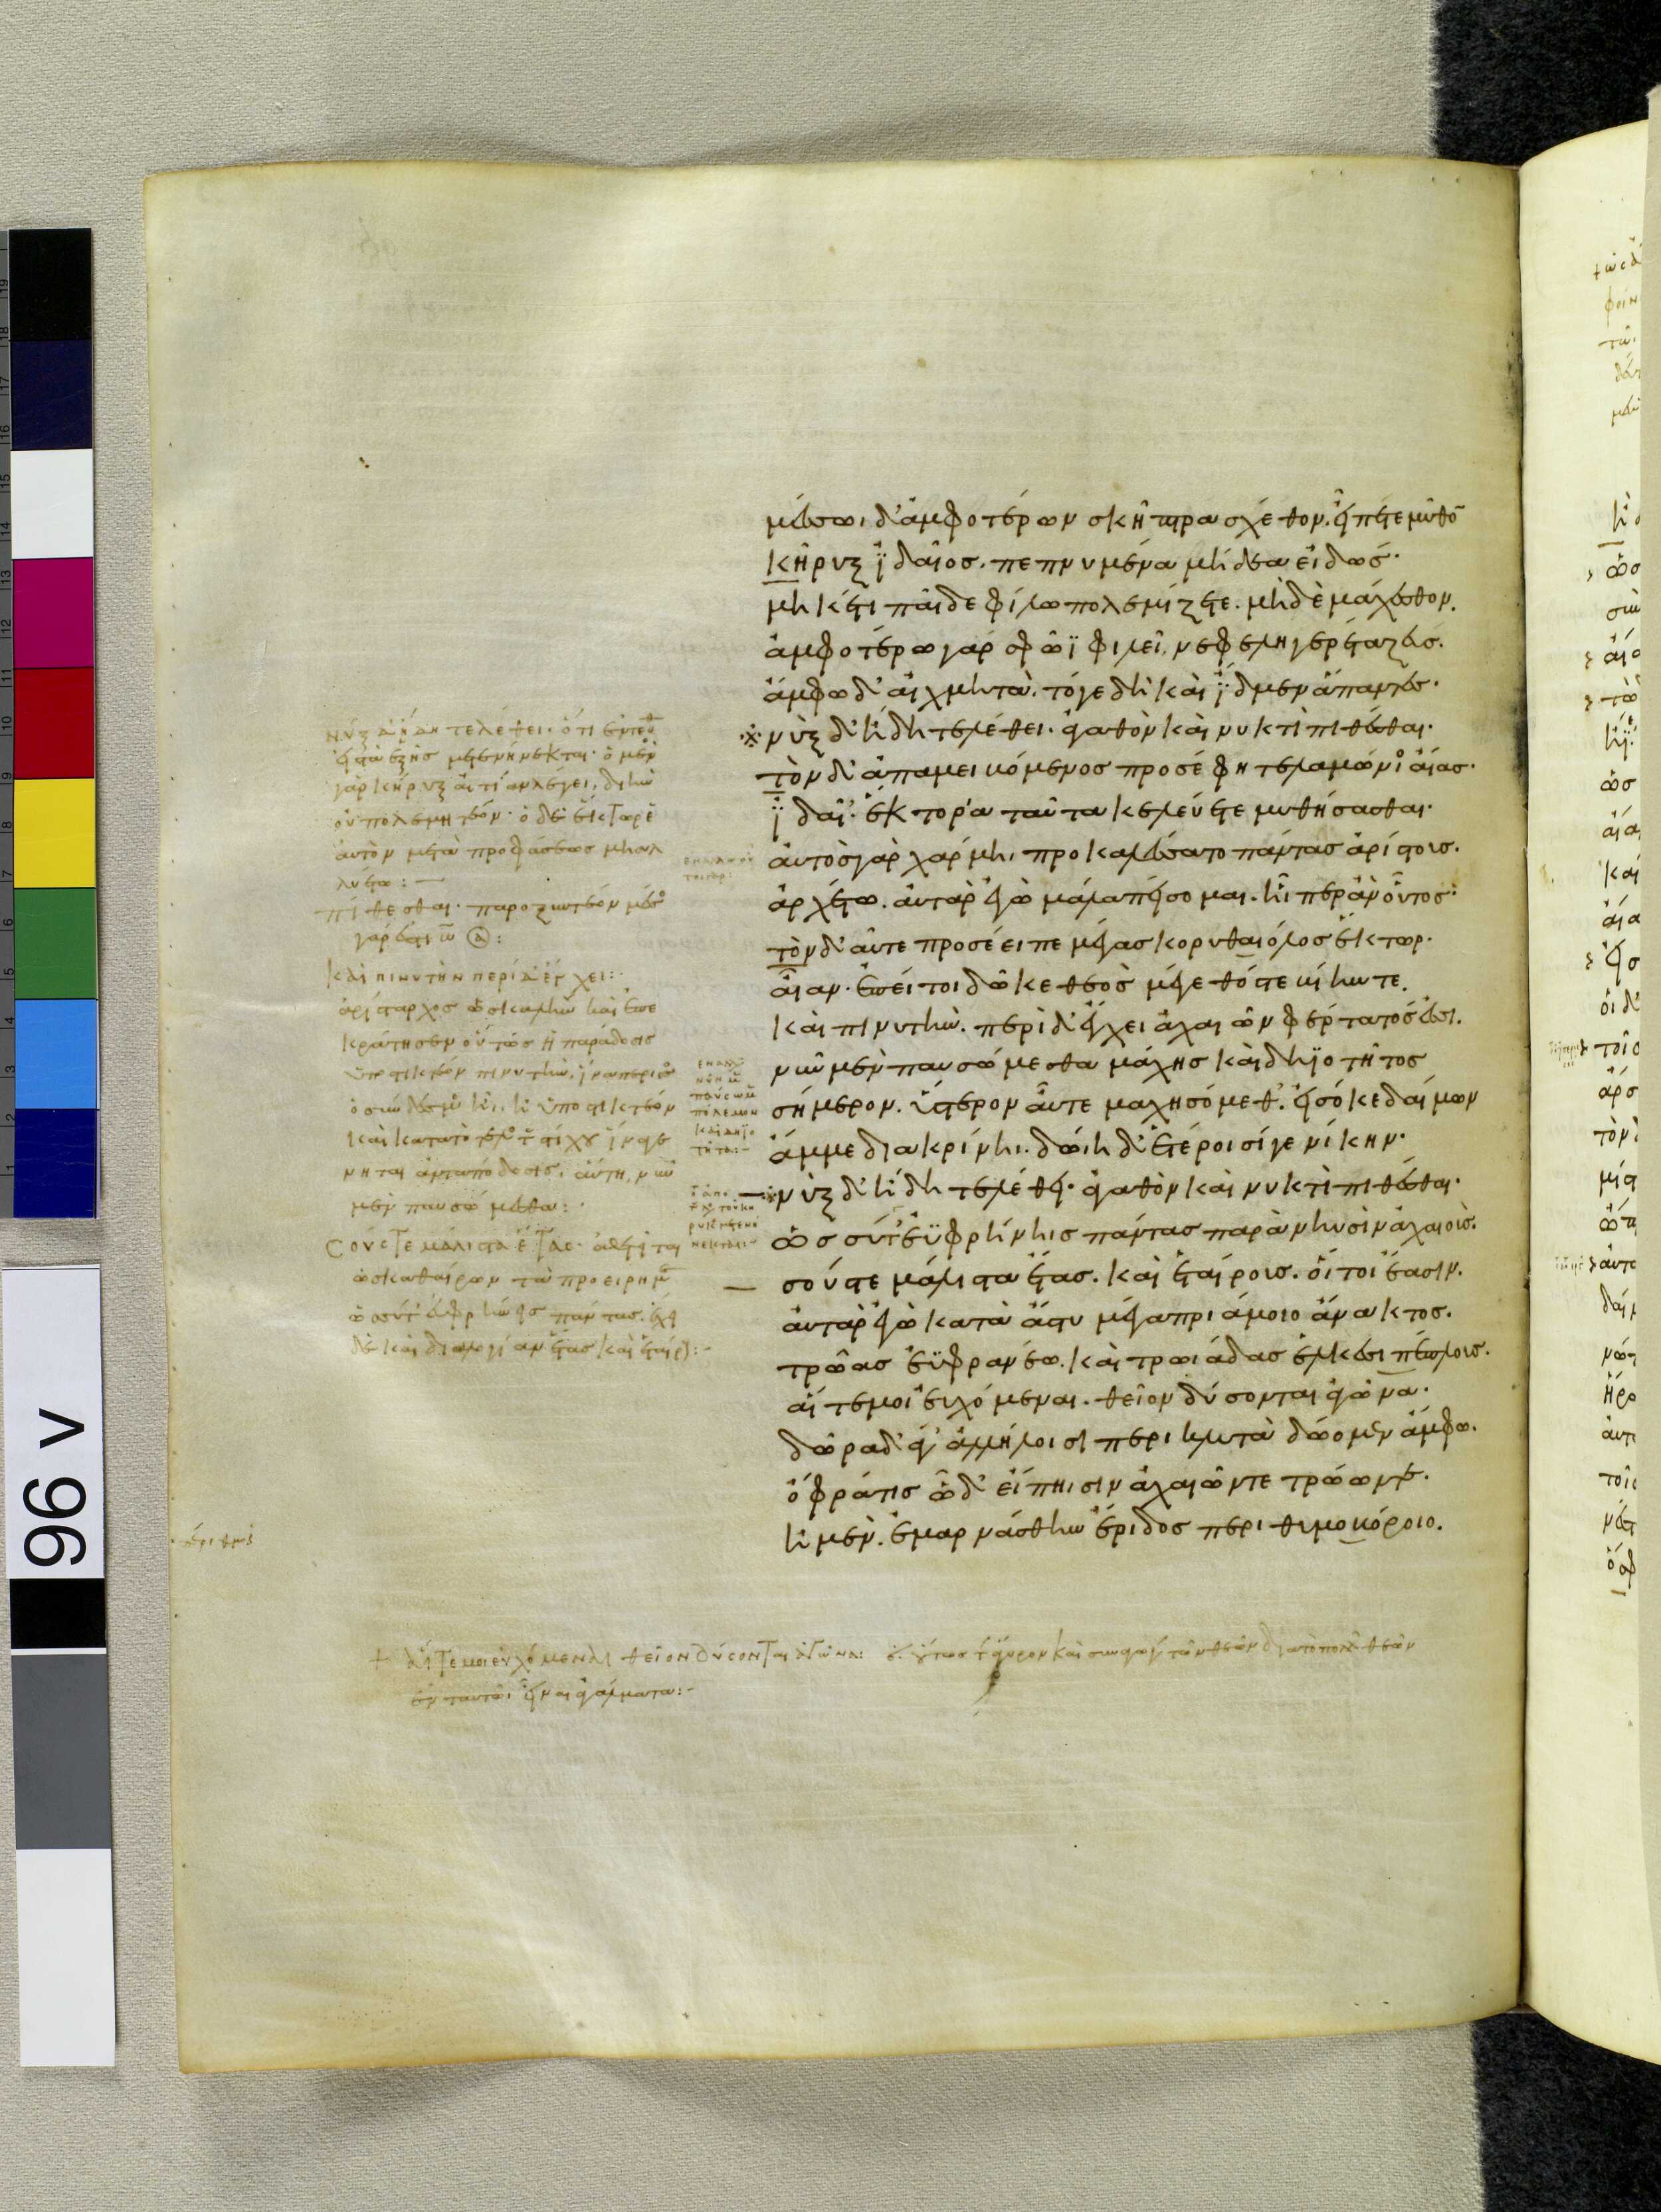 μέσσωι δ' ἀμφοτέρων σκῆπτρα σχέθον. εἶπέ τε μῦθον
κῆρυξ ἰδαῖος. πεπνυμένα μήδεα εἰδώς·
μηκέτι παῖδε φίλω πολεμίζετε. μηδὲ μάχεσθον.
ἀμφοτέρω γὰρ σφῶϊ φιλεῖ νεφεληγερέτα ζεύς.
ἄμφω δ' αἰχμητά. τόγε δὴ καὶ ἴδμεν ἅπαντες.
※ νὺξ δ' ἤδη τελέθει· ἀγαθὸν καὶ νυκτὶ πιθέσθαι·
τὸν δ' ἀπαμειβόμενος προσέφη τελαμώνιος αἴας·
ἰδαῖ' ἕκτορα ταῦτα κελεύετε μυθήσασθαι·
αὐτὸς γὰρ χάρμηι προκαλέσσατο πάντας ἀρίστους.
ἀρχέτω. αὐτὰρ ἐγὼ μάλα πείσομαι. ἧι περ ἂν οὗτος·
τὸν δ' αὖτε προσέειπε μέγας κορυθαιόλος ἕκτωρ·
αἶαν· ἐπεί τοι δῶκε θεὸς μέγεθός τε βίην τε.
καὶ πινυτήν. περὶ δ' ἔγχει ἀχαιῶν φέρτατός ἐσσι.
νῦν μὲν παυσώμεσθα μάχης καὶ δηϊοτῆτος
σήμερον. ὕστερον αὖτε μαχησόμεθ'. εἰς ὅ κε δαίμων
ἄμμε διακρίνηι. δώηι δ' ἑτέροισί γε νίκην·
—※ νὺξ δ' ἤδη τελέθει· ἀγαθὸν καὶ νυκτὶ πιθέσθαι·
ὡς σύ τ' ἐϋφρήνηις πάντας παρὰ νηυσὶν ἀχαιούς.
— σούς τε μάλιστα ἔτας. καὶ ἑταίρους. οἵ τοι ἔασιν.
αὐτὰρ ἐγὼ κατὰ ἄστυ μέγα πριάμοιο ἄνακτος.
τρῶας ἐϋφρανέω. καὶ τρωιάδας ἑλκεσιπέπλους.
αἵ τέ μοι εὐχόμεναι. θεῖον δύσονται ἀγῶνα·
δῶρα δ' ἄγ' ἀλλήλοισι περικλυτὰ δώομεν ἄμφω.
ὄφρά τις ὧδ' εἴπηισιν ἀχαιῶν τε τρώων τε.
ἠμὲν. ἐμαρνάσθην ἔριδος περὶ θυμοβόροιο.
νὺξ δ' ἤδη τελέθει· ὅτι ἐντεῦθεν
εἰς τὰ ἑξῆς μετενήνεκται· ὁ μὲν
γὰρ κῆρυξ αἰτίαν λέγει, δι' ἣν
οὐ πολεμητέον· ὁ δὲ ἕκτωρ
αὐτὸν μετὰ προφάσεως
πίθεσθαι· παροξυντέον μέσος
γάρ ἐστι
καὶ πινυτὴν περὶ δ' ἔγχει:
ἀρίσταρχος ὡς καλήν καὶ ἐπε
κράτησεν οὕτως ἡ παράδοσις
ὑποστικτέον πινυτήν.
ὁ σύνδεσμος ἦι. ἢ ὑποστικτέον
καὶ κατὰ τὸ τέλος τοῦ στίχου ἵνα γέ
νηται ἀνταπόδοσις, αὕτη, νῦν
μὲν παυσώμεθα:
σούς τε μάλιστα ἔτας· ἀθετεῖται
ὡς καθαίρων τὰ προειρημένα
ὡς σύ τ' ἐϋφρήνηις πάντας. ἔχει
δὲ καὶ διαλογίαν ἔτας καὶ ἑταίρους:
πόλεμον
καὶ δηϊο
τῆτα:
+ αἵ τέ μοι εὐχόμεναι θεῖον δύσονται ἀγῶνα: οὕτως τὸ ἄθροισμα καὶ συναγωγὴν τῶν θεῶν διὰ τὸ πολλῶν θεῶν
ἐν ταυτῶι εἶναι ἀγάλματα: